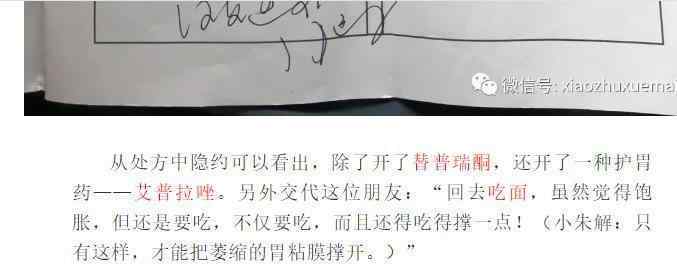 微信号: xiaozhuxuema
从处方中隐约可以看出，除了开了替普瑞酮，还开了一种护胃
药——艾普拉唑。另外交代这位朋友：“回去吃面，虽然觉得饱
胀，但还是要吃，不仅要吃，而且还得吃得撑一点！（小朱解：只
有这样，才能把萎缩的胃粘膜撑开。）”